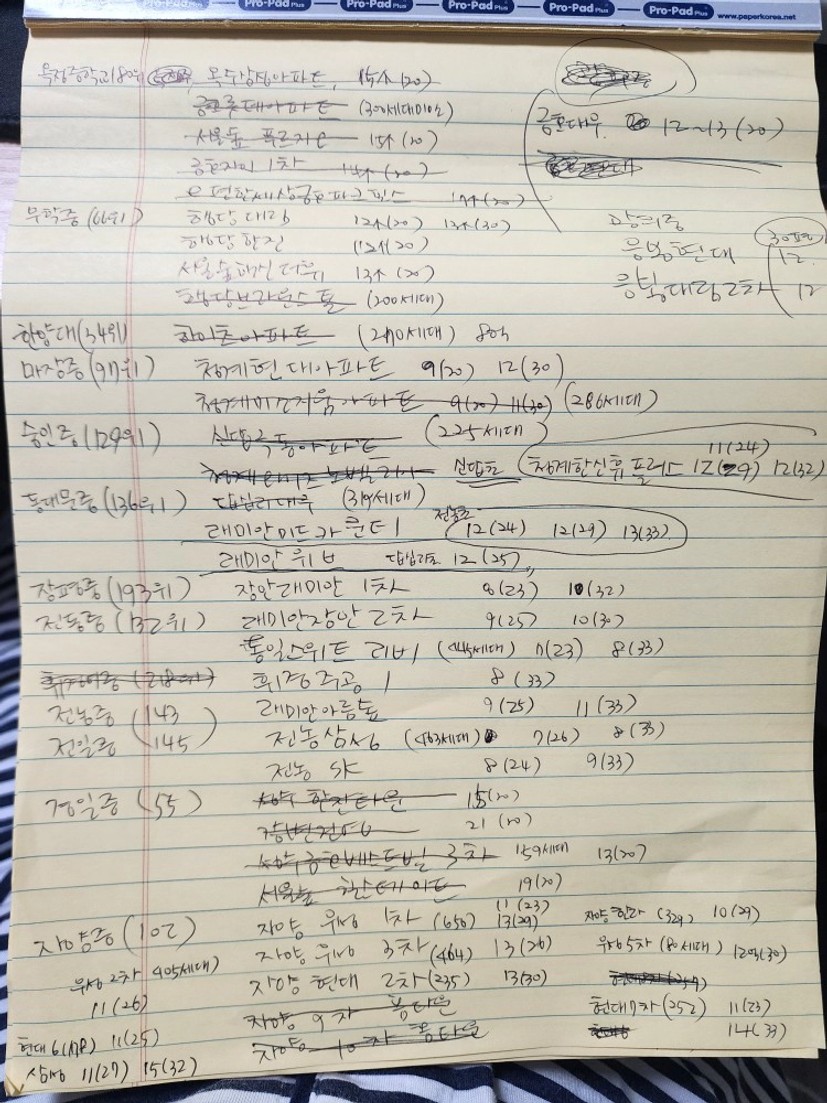 Pro-Pad Plus Pro-Pad Plus Pro-Pad Plus Pro-Pad Plus Pro-Pad Plus www.paperkorea.net
옥정중학교(80위) 옥수삼성아파트, 15↑(20)
아파트 (300세대미만)
금호대우 12~13(20)
서울숲 푸르지오 15↑(20)
금호자이 1차 14↑(20)
e편한세상금호파크힐스 17↑(20)
무학중(66위) 행당대림 12↑(20) 13↑(30)
광희중
행당한진 12↑(20)
응봉현대 12.
30평
서울숲 더샵 13↑(20)
응봉대림2차 12
행당브라운스톤 (200세대)
한양대(34위) 아파트 (240세대) 8억
마장중(97위) 청계현대아파트 9(20) 12(30)
청계 아파트 9(20) 11(30) (286세대)
숭인중(129위) 신답극동아파트 (225세대)
신답초 청계한신휴플러스 11(24) 12(29) 12(32)
동대문중(136위) 답십리대우 (319세대)
래미안미드카운티 전농초 12(24) 12(29) 13(33)
래미안위브 답십리초 12(25)
장평중(193위) 장안래미안 1차 8(23) 10(32)
전동중(132위) 래미안장안 2차 9(25) 10(30)
동일스위트 리버 (445세대) 7(23) 8(33)
휘경여중(218위) 휘경주공 1 8(33)
전농중(143 래미안아름숲 9(25) 11(33)
전일중(145) 전농삼성 (463세대) 7(26) 8(33)
전농 SK 8(24) 9(33)
경일중(55) 성수 한진타운 15(20)
강변건영 21(20)
성수금호베스트빌 3차 159세대 13(20)
서울숲 힐스테이트 19(20)
자양중(102 자양 우성 1차 (656) 11(23) 13(29) 자양한라 (329) 10(29)
자양 우성 3차 (464) 13(26) 우성5차 (80세대) 12억(30)
우성2차 405세대) 11(26)
자양 현대 2차(235) 13(30)
자양 9차 현대7차(252) 11(23)
현대6(178) 11(25) 자양 10차 14(33)
삼성 11(27) 15(32)